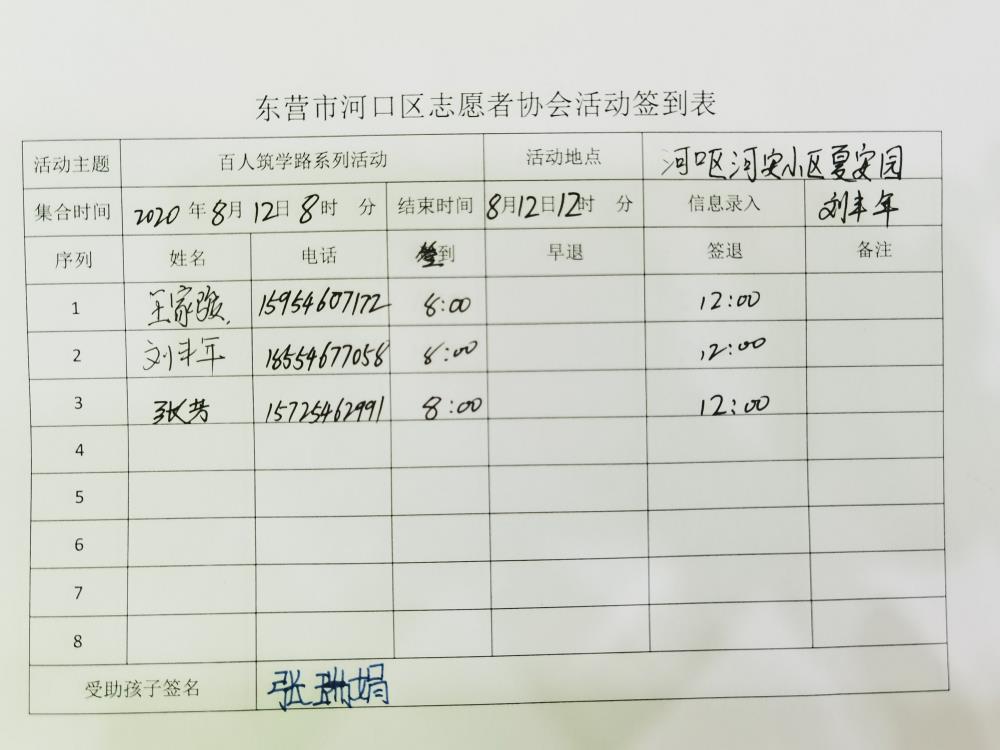 东营市河口区志愿者协会活动签到表
活动主题 百人筑学路系列活动 活动地点 河口区河安小区夏安园
集合时间 2020年8月12日8时 分 结束时间 8月12日12时 分 信息录入 刘丰年
序列 姓名 电话 签到 早退 签退 备注
1 王家骏 15954607172 8:00 12:00
2 刘丰年 18554677058 8:00 12:00
3 张芳 15725462991 8:00 12:00
4
5
6
7
8
受助孩子签名 张珊娟